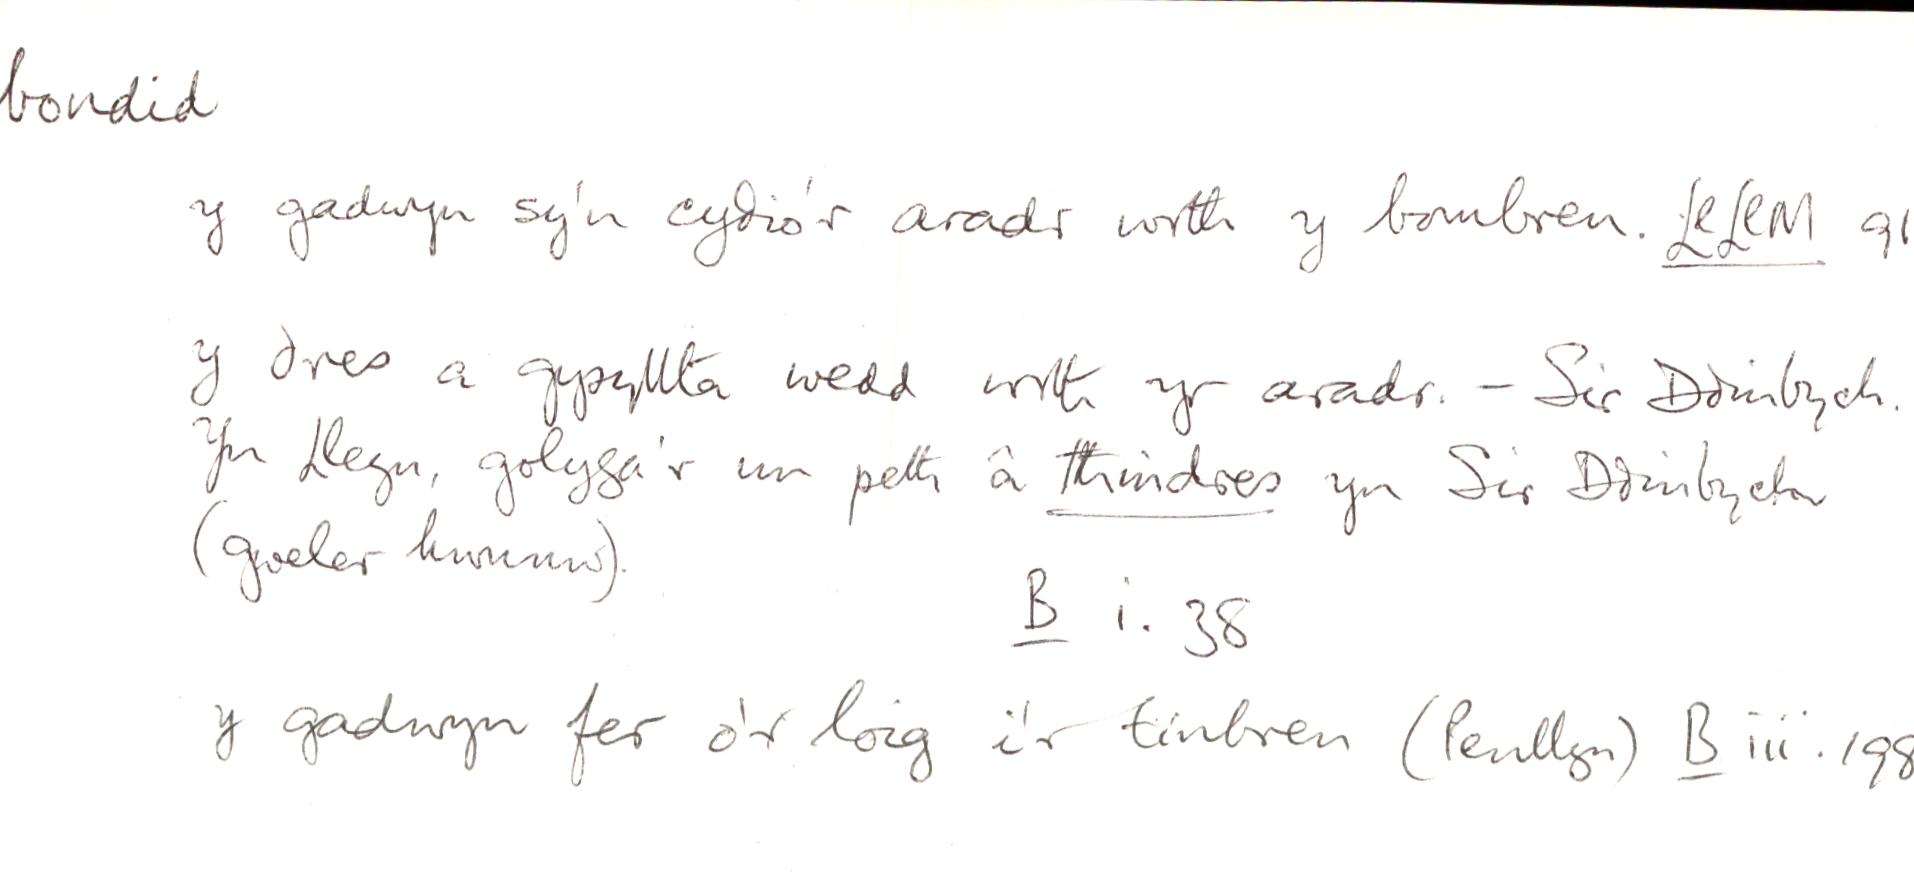 bondid
y gadwyn sy'n cyðio'r aradr wrth y bombren. LlLlM 91
y ðres a gysyllta wedd wrth yr aradr. – Sir Dðinbych.
Yn Lleyn, golyga'r un peth â thindres yn Sir Dðinbych
(gweler hwnnw).
B i. 38
y gadwyn fer o'r loig i'r tinbren (Penllyn) B iii. 198